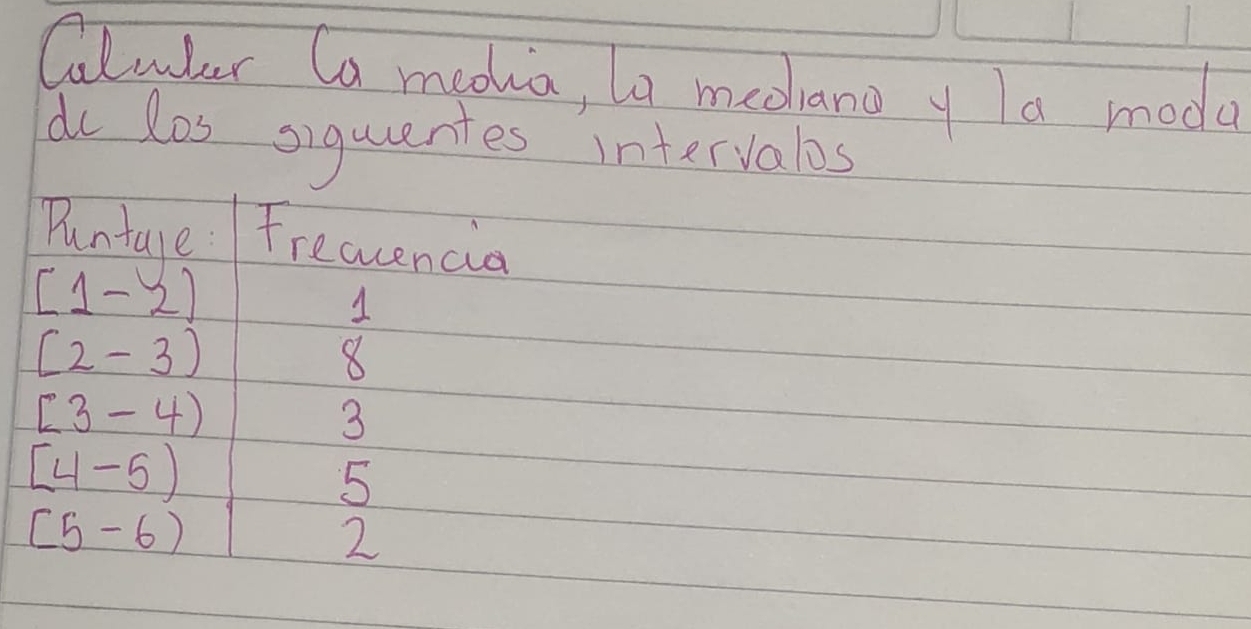 Calcular la media, la mediana y la moda
de los siguientes intervalos
Puntaje: Frecuencia
[1-2) 1
[2-3) 8
[3-4) 3
[4-5) 5
[5-6) 2